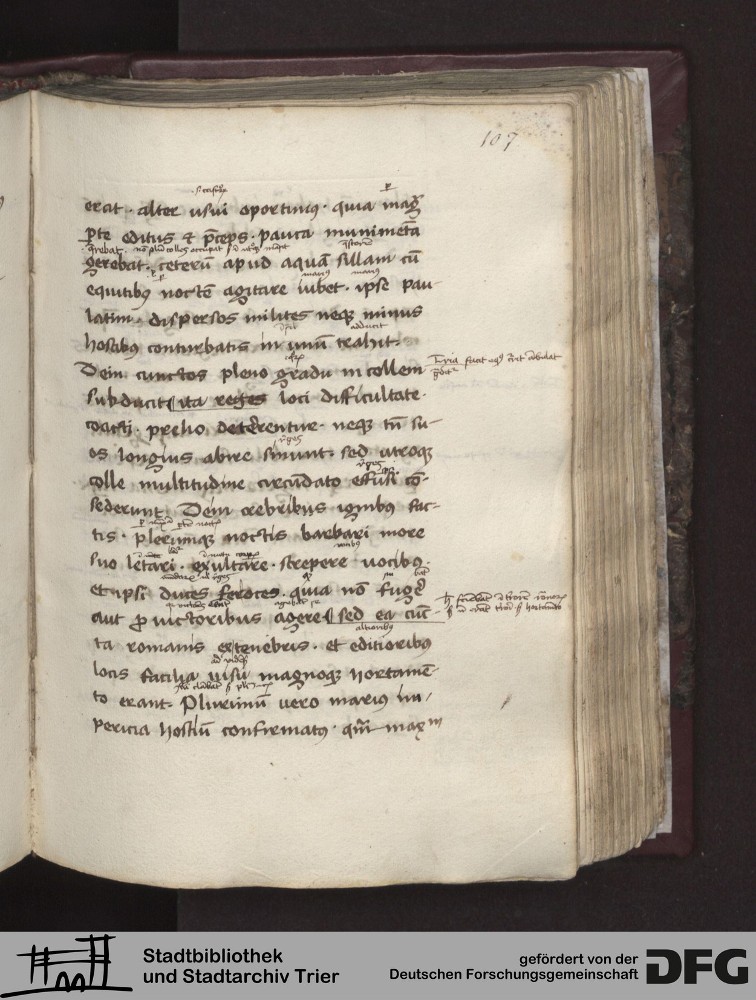 107
erat · alter usui oportunus · quia mag̃
p̱te editus & p̄ceps · pauca munimēta
gerebat · ceterū apud aquā sillam cū
equitibꝰ noctē agitare iubet · ipse pau
latim · dispersos milites neqꝫ minus
hostibꝰ conturbatis in unū trahit ·
adducit
Dein cunctos pleno gradu in collem
subducit ita reges loci difficultate ·
coacti · prelio deterrentur · neqꝫ tn̄ su-
os longius abire sinunt · sed utroqꝫ
colle multitudine circūdato effusi cō-
sederunt Dein crebribus ignibus fac-
tis · plerumqꝫ noctis barbari more
suo letari · exultare · strepere uocibꝰ ·
Et ipsi duces feroces · quia nō fugeř
aut ꝓ uictoribus agere sed ea cūc-
altioribus
ta romanis ex tenebris · et editioribus
locis facilia uisu magnoqꝫ hortamē-
to erant · Plurimū uero marius im-
pericia hostiū confirmatꝰ · qm̄ maxm
Stadtbibliothek
und Stadtarchiv Trier
gefördert von der
Deutschen Forschungsgemeinschaft
DFG